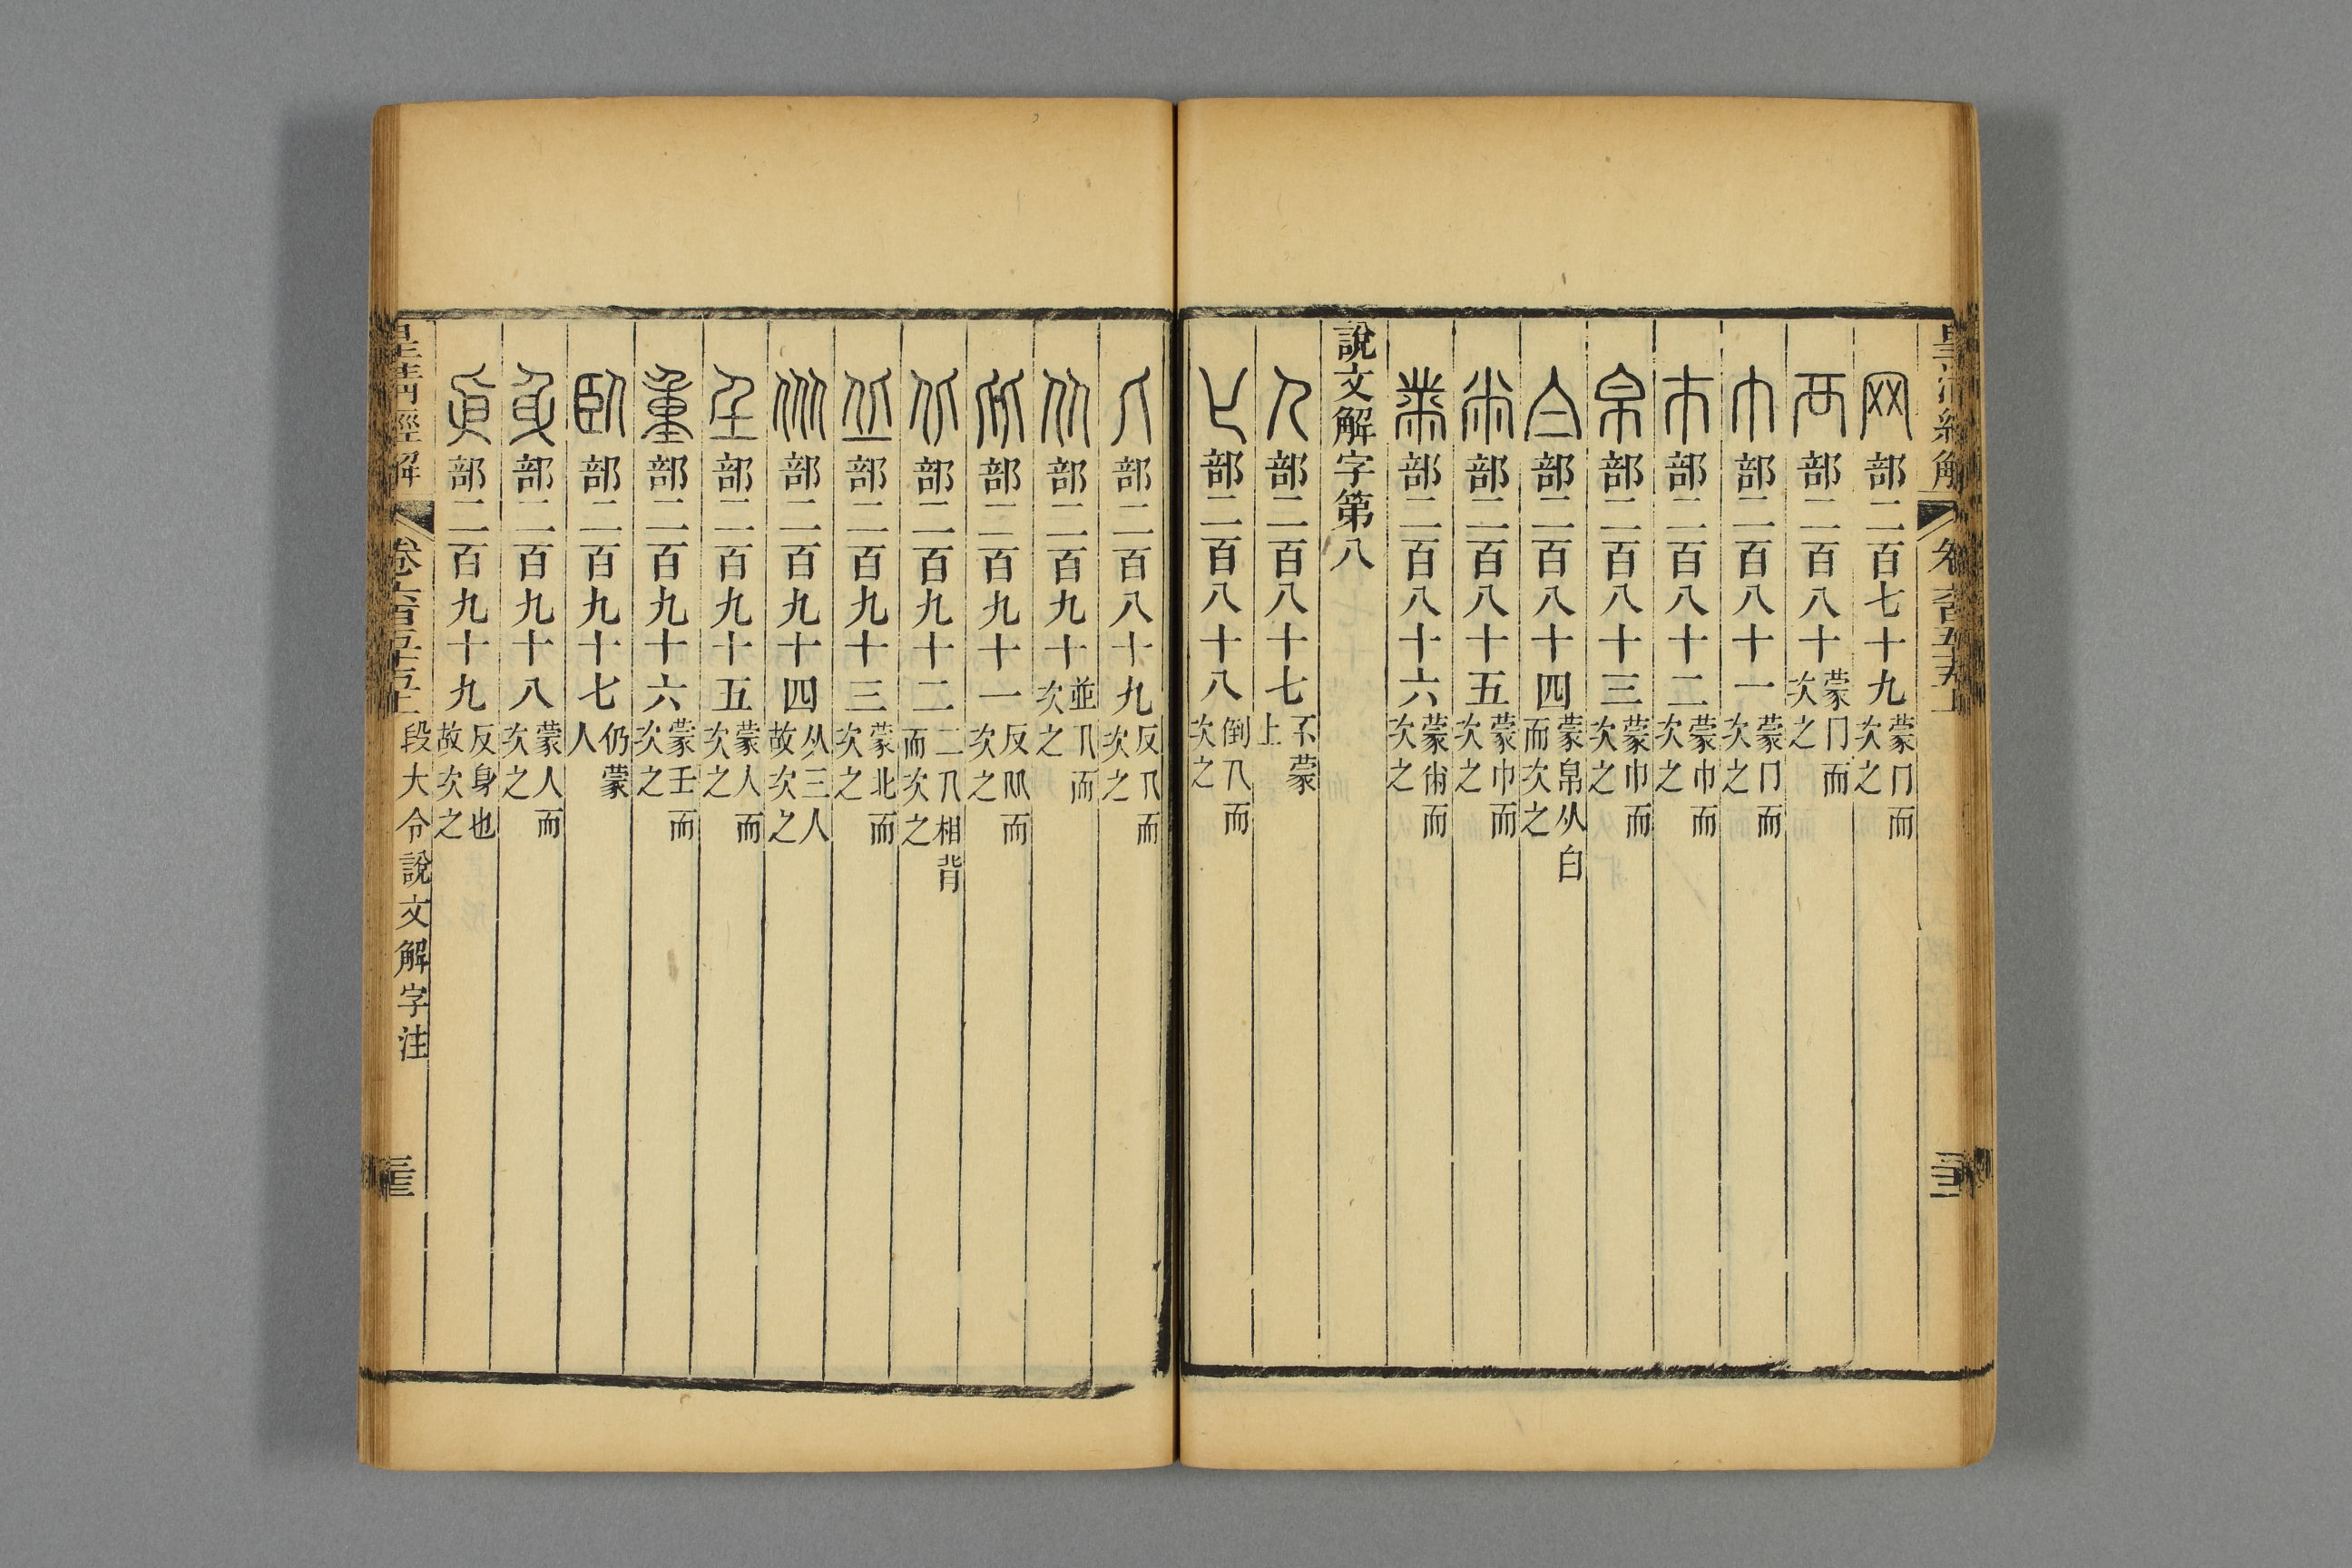 皇清經解 卷六百五十五上
网部二百七十九 蒙冂而次之
襾部二百八十 蒙冂而次之
巾部二百八十一 蒙冂而次之
巿部二百八十二 蒙巾而次之
帛部二百八十三 蒙巾而次之
白部二百八十四 蒙帛从白而次之
㡀部二百八十五 蒙巾而次之
黹部二百八十六 蒙㡀而次之
說文解字第八
人部二百八十七 不蒙上
𠤎部二百八十八 倒人而次之
匕部二百八十九 反人而次之
从部二百九十 並人而次之
比部二百九十一 反从而次之
北部二百九十二 二人相背而次之
丘部二百九十三 蒙北而次之
㐺部二百九十四 从三人故次之
𡈼部二百九十五 蒙人而次之
重部二百九十六 蒙壬而次之
臥部二百九十七 仍蒙人
身部二百九十八 蒙人而次之
㐆部二百九十九 反身也故次之
皇清經解 卷六百五十五上 段大令說文解字注